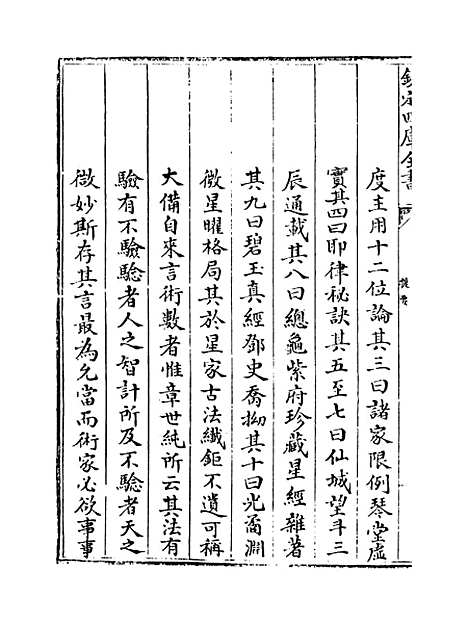 欽定四庫全書
提要
度主用十二位論其三曰諸家限例琴堂虛
實其四曰耶律秘訣其五至七曰仙城望斗三
辰通載其八曰總龜紫府珍藏星經雜著
其九曰碧玉真經鄧史喬拗其十曰光裔淵
微星曜格局其於星家古法纖鉅不遺可稱
大備自來言術數者惟章世純所云其法有
驗有不驗驗者人之智計所及不驗者天之
微妙斯存其言最為允當而術家必欲事事